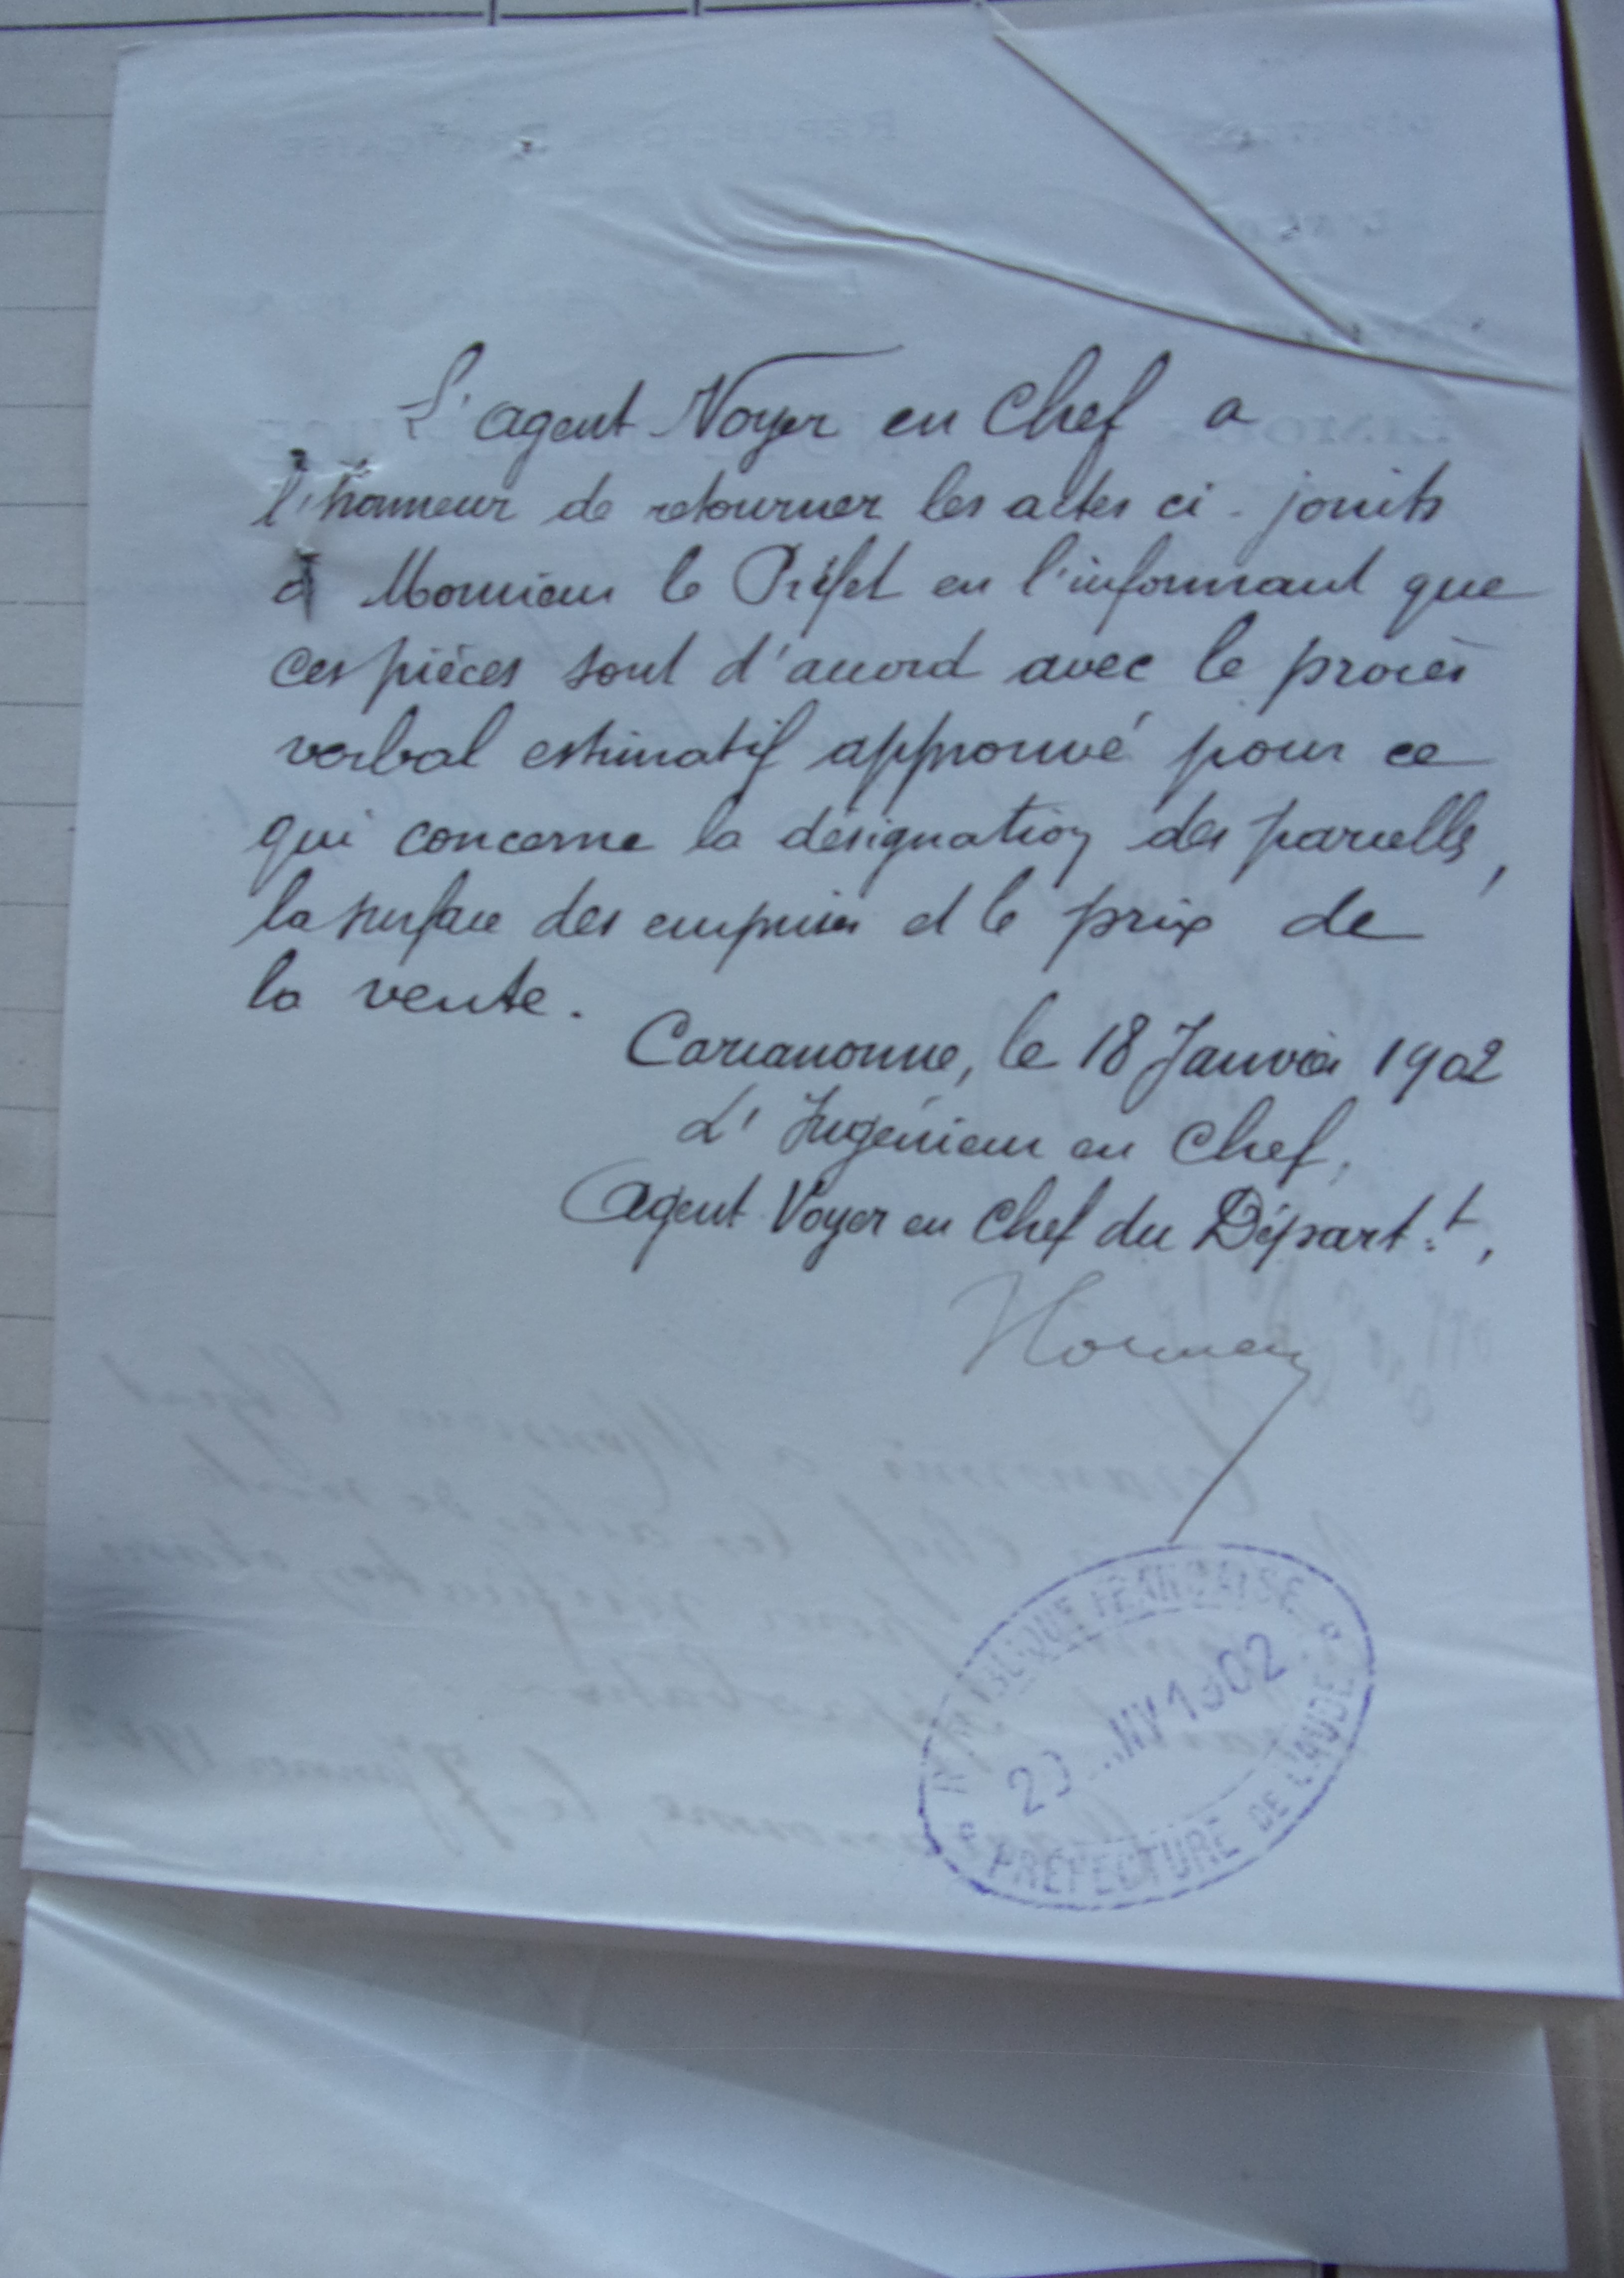 L'agent Voyer en Chef a
l'honneur de retourner les actes ci-joints
à Monsieur le Préfet en l'informant que
ces pièces sont d'accord avec le procès
verbal estimatif approuvé pour ce
qui concerne la désignation des parcelles,
la surface des emprises et le prix de
la vente.
Carcassonne, le 18 Janvier 1902
L'Ingénieur en Chef,
Agent Voyer en Chef du Départ.t,
RÉPUBLIQUE FRANÇAISE
20 JANV 1902
PRÉFECTURE DE L'AUDE